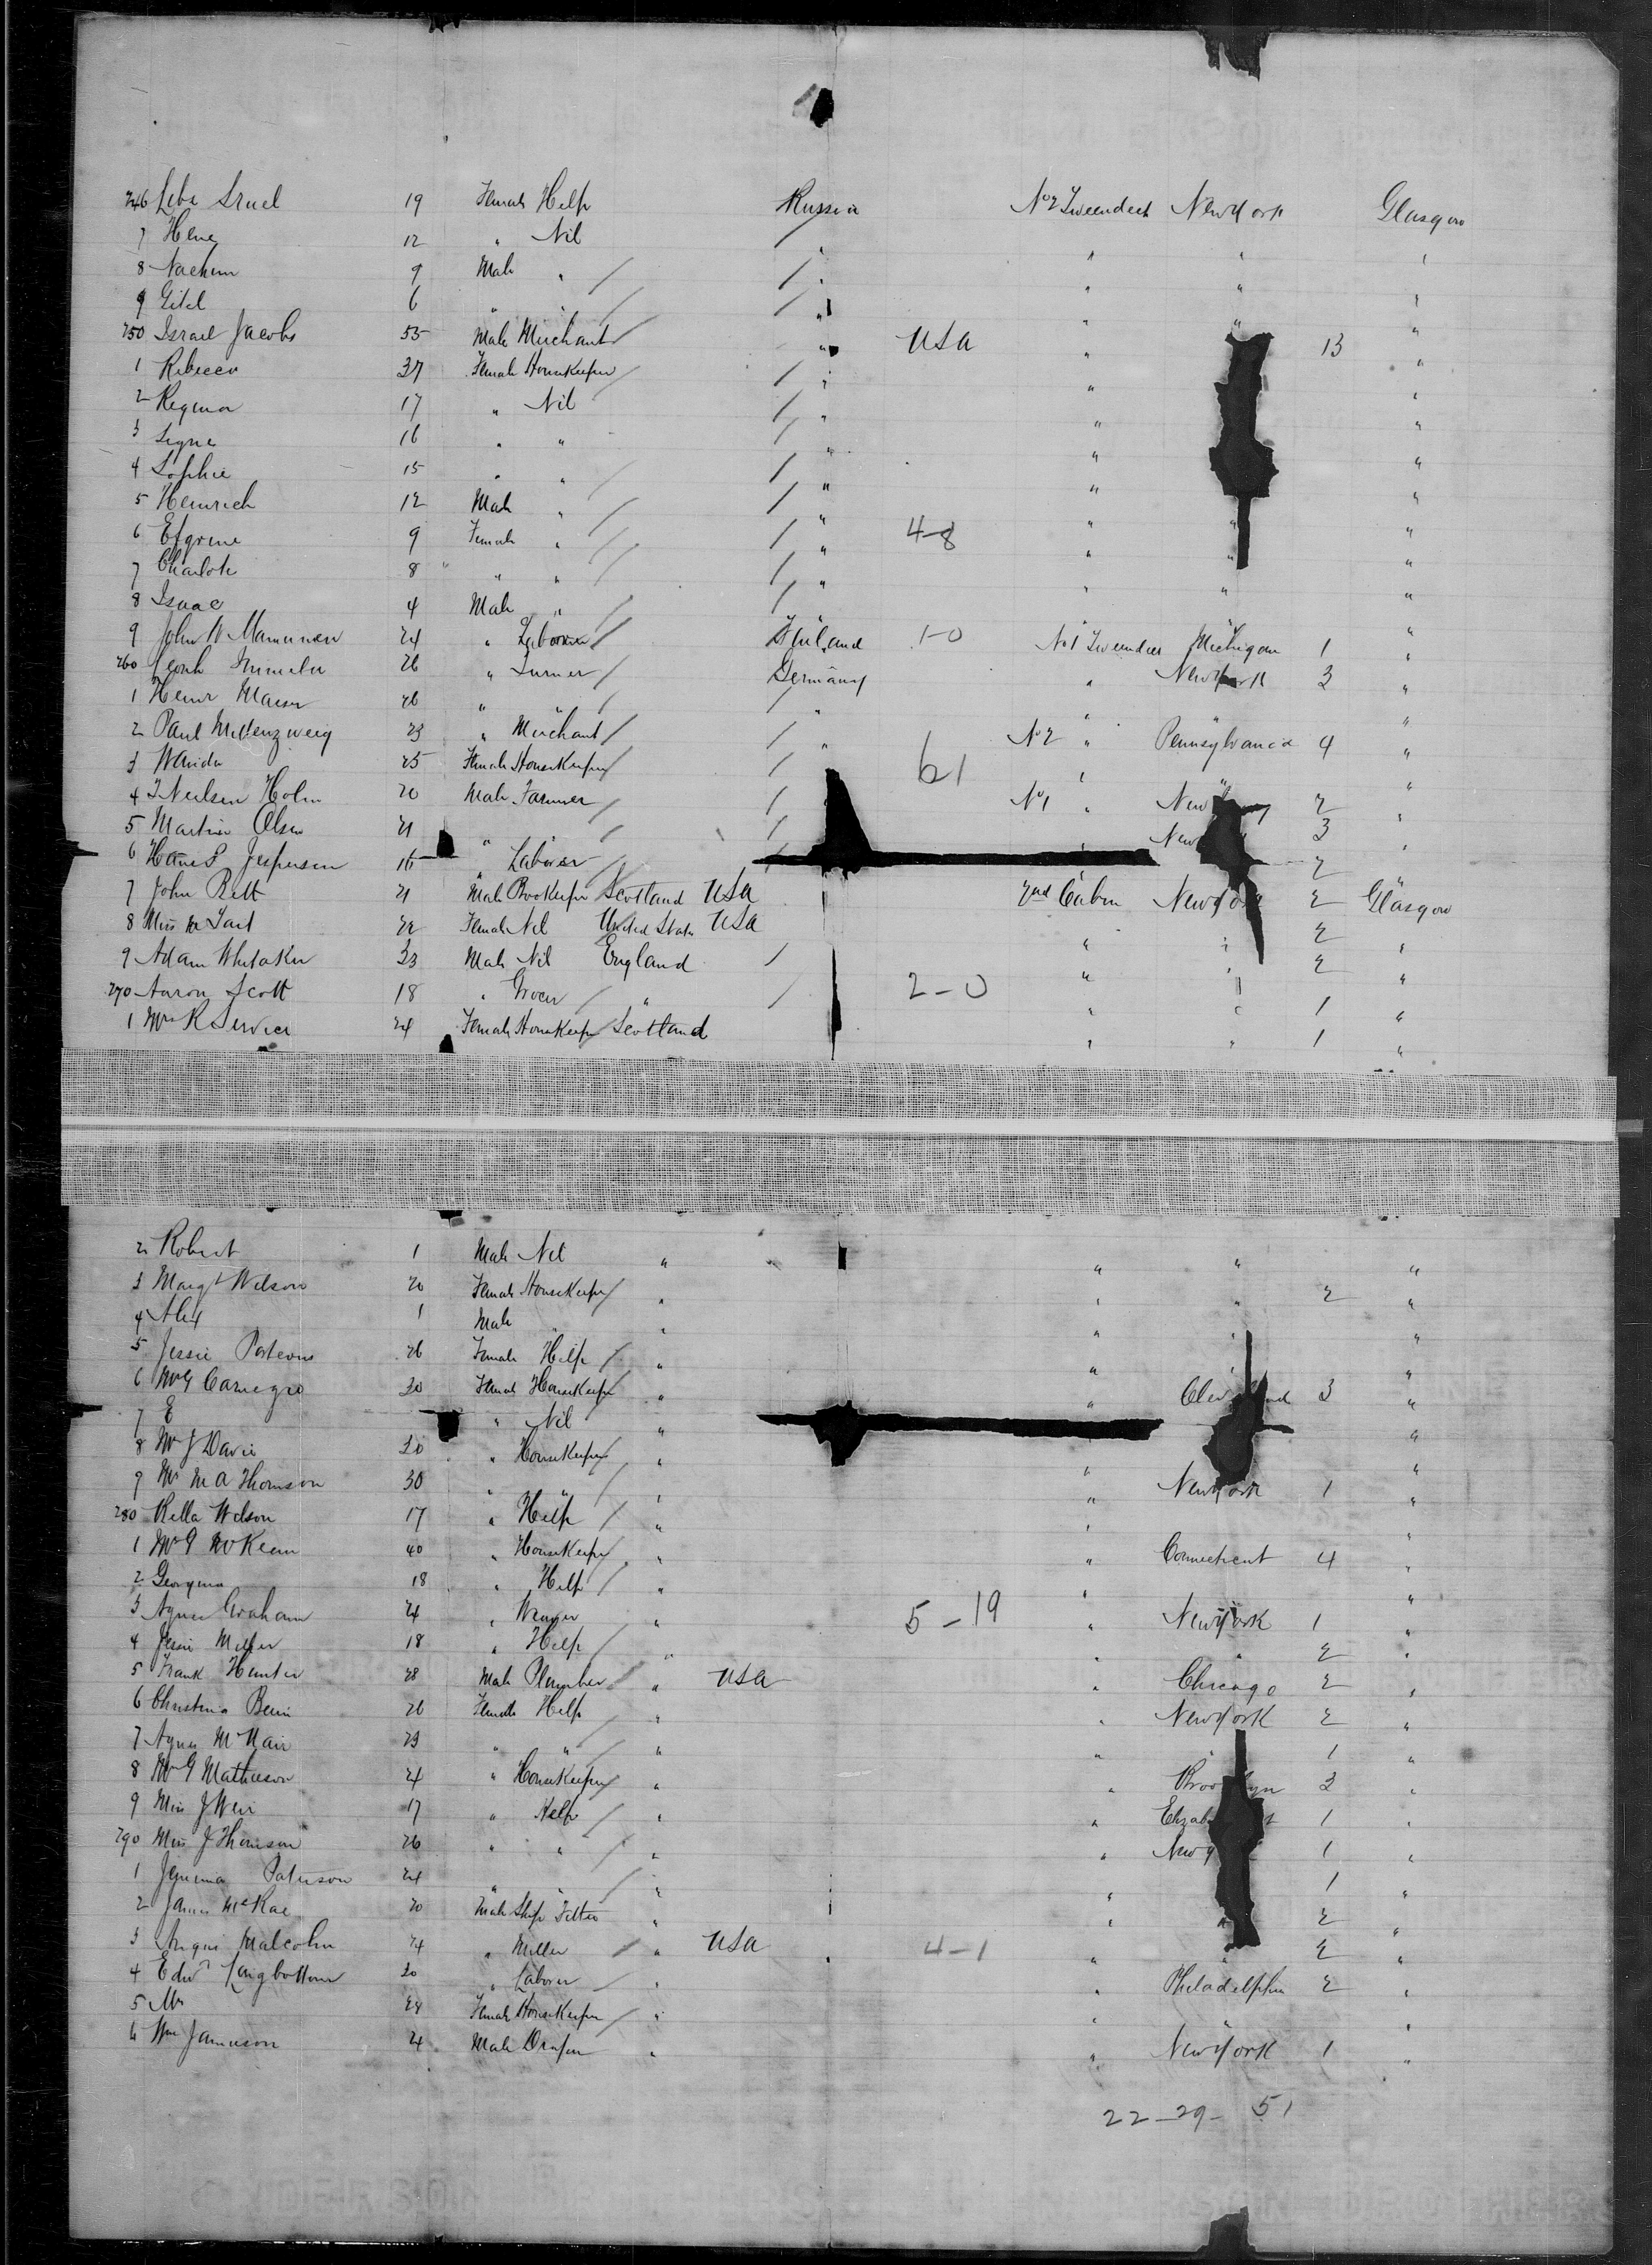 246 Liba Sruel 19 Female Help Russia No 2 Tweendeck New York Glasgow
7 Hene 12 " Nil " " " "
8 Nachum 9 Male " / / " " " "
9 Gitel 6 " " / / " " " "
250 Israel Jacobs 55 Male Merchant / " USA " 13 "
1 Rebecca 37 Female Housekeeper / / " " "
2 Regina 17 " Nil / " " "
3 Signe 16 " " / " " "
4 Sophie 15 " " / / " " "
5 Heinrich 12 Male " / / " " " "
6 9 Female " / / " 4-8 " " "
7 Charlote 8 " " " / / " " " "
8 Isaac 4 Male " / / " " " "
9 John W 24 " Laborer / Finland 1-0 No 1 Tweendeck Michigan 1 "
260 26 " Turner / Germany " New York 3 "
1 26 " " / / " " " "
2 Paul 23 " Merchant / / " No 2 " Pennsylvania 4 "
3 Wanda 25 Female Housekeeper / / 61 " "
4 Neilsen Holm 20 Male Farmer / / No 1 " New 2 "
5 Martin Olsen 21 " / / New 3 "
6 Hans P Jespersen 16 " Laborer / / " 2 "
7 John 21 Male Bookeeper Scotland USA 2nd Cabin New York 2 Glasgow
8 Miss M Tait 22 Female Nil United States USA " " 2 "
9 Adam Whitaker 33 Male Nil England / " " 2 "
270 Aaron Scott 18 " Grocer / " / 2-0 " " 1 "
1 Mrs R Service 24 Female Housekeeper / Scotland " " 1 "
2 Robert 1 Male Nil " " " "
3 Margt Wilson 20 Female Housekeeper / " " " 2 "
4 Alex 1 Male " " " " "
5 Jessie 26 Female Help / " " " "
6 Mrs 30 Female Housekeeper / " " Cleveland 3 "
7 E " Nil " "
8 Mrs J Davie 30 " Housekeeper / " " "
9 Mrs M A Thomson 30 " " / " " New York 1 "
280 Rella Wilson 17 " Help / " " "
1 Mrs G McKeen 40 " Housekeeper / " " Connecticut 4 "
2 Georgina 18 " Help / " " "
3 Agnes Graham 24 " Weaver " 5-19 " New York 1 "
4 Jessie 18 " Help / " " " 2 "
5 Frank Hunter 28 Male Plumber / " USA " Chicago 2 "
6 Christina 26 Female Help " " New York 2 "
7 Agnes McNair 23 " " / " " " 1 "
8 Mrs G Mathieson 24 " Housekeeper / " " Brooklyn 3 "
9 Miss J Weir 17 " Help / " " 1 "
290 Miss J Thomson 26 " " / " " New 1 "
1 Jemima Paterson 24 " " / " " 1 "
2 James McRae 20 Male Ship Fitter " " " 2 "
3 Angus Malcolm 24 " Miller / " USA 4-1 " " 2 "
4 Edwd Longbottom 30 " Laborer / " " Philadelphia 2 "
5 Mrs 28 Female Housekeeper / " " " "
6 Wm Jamieson 24 Male Draper " " New York 1 "
22-29- 51